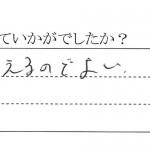 ていかがでしたか？
えるのでよい。